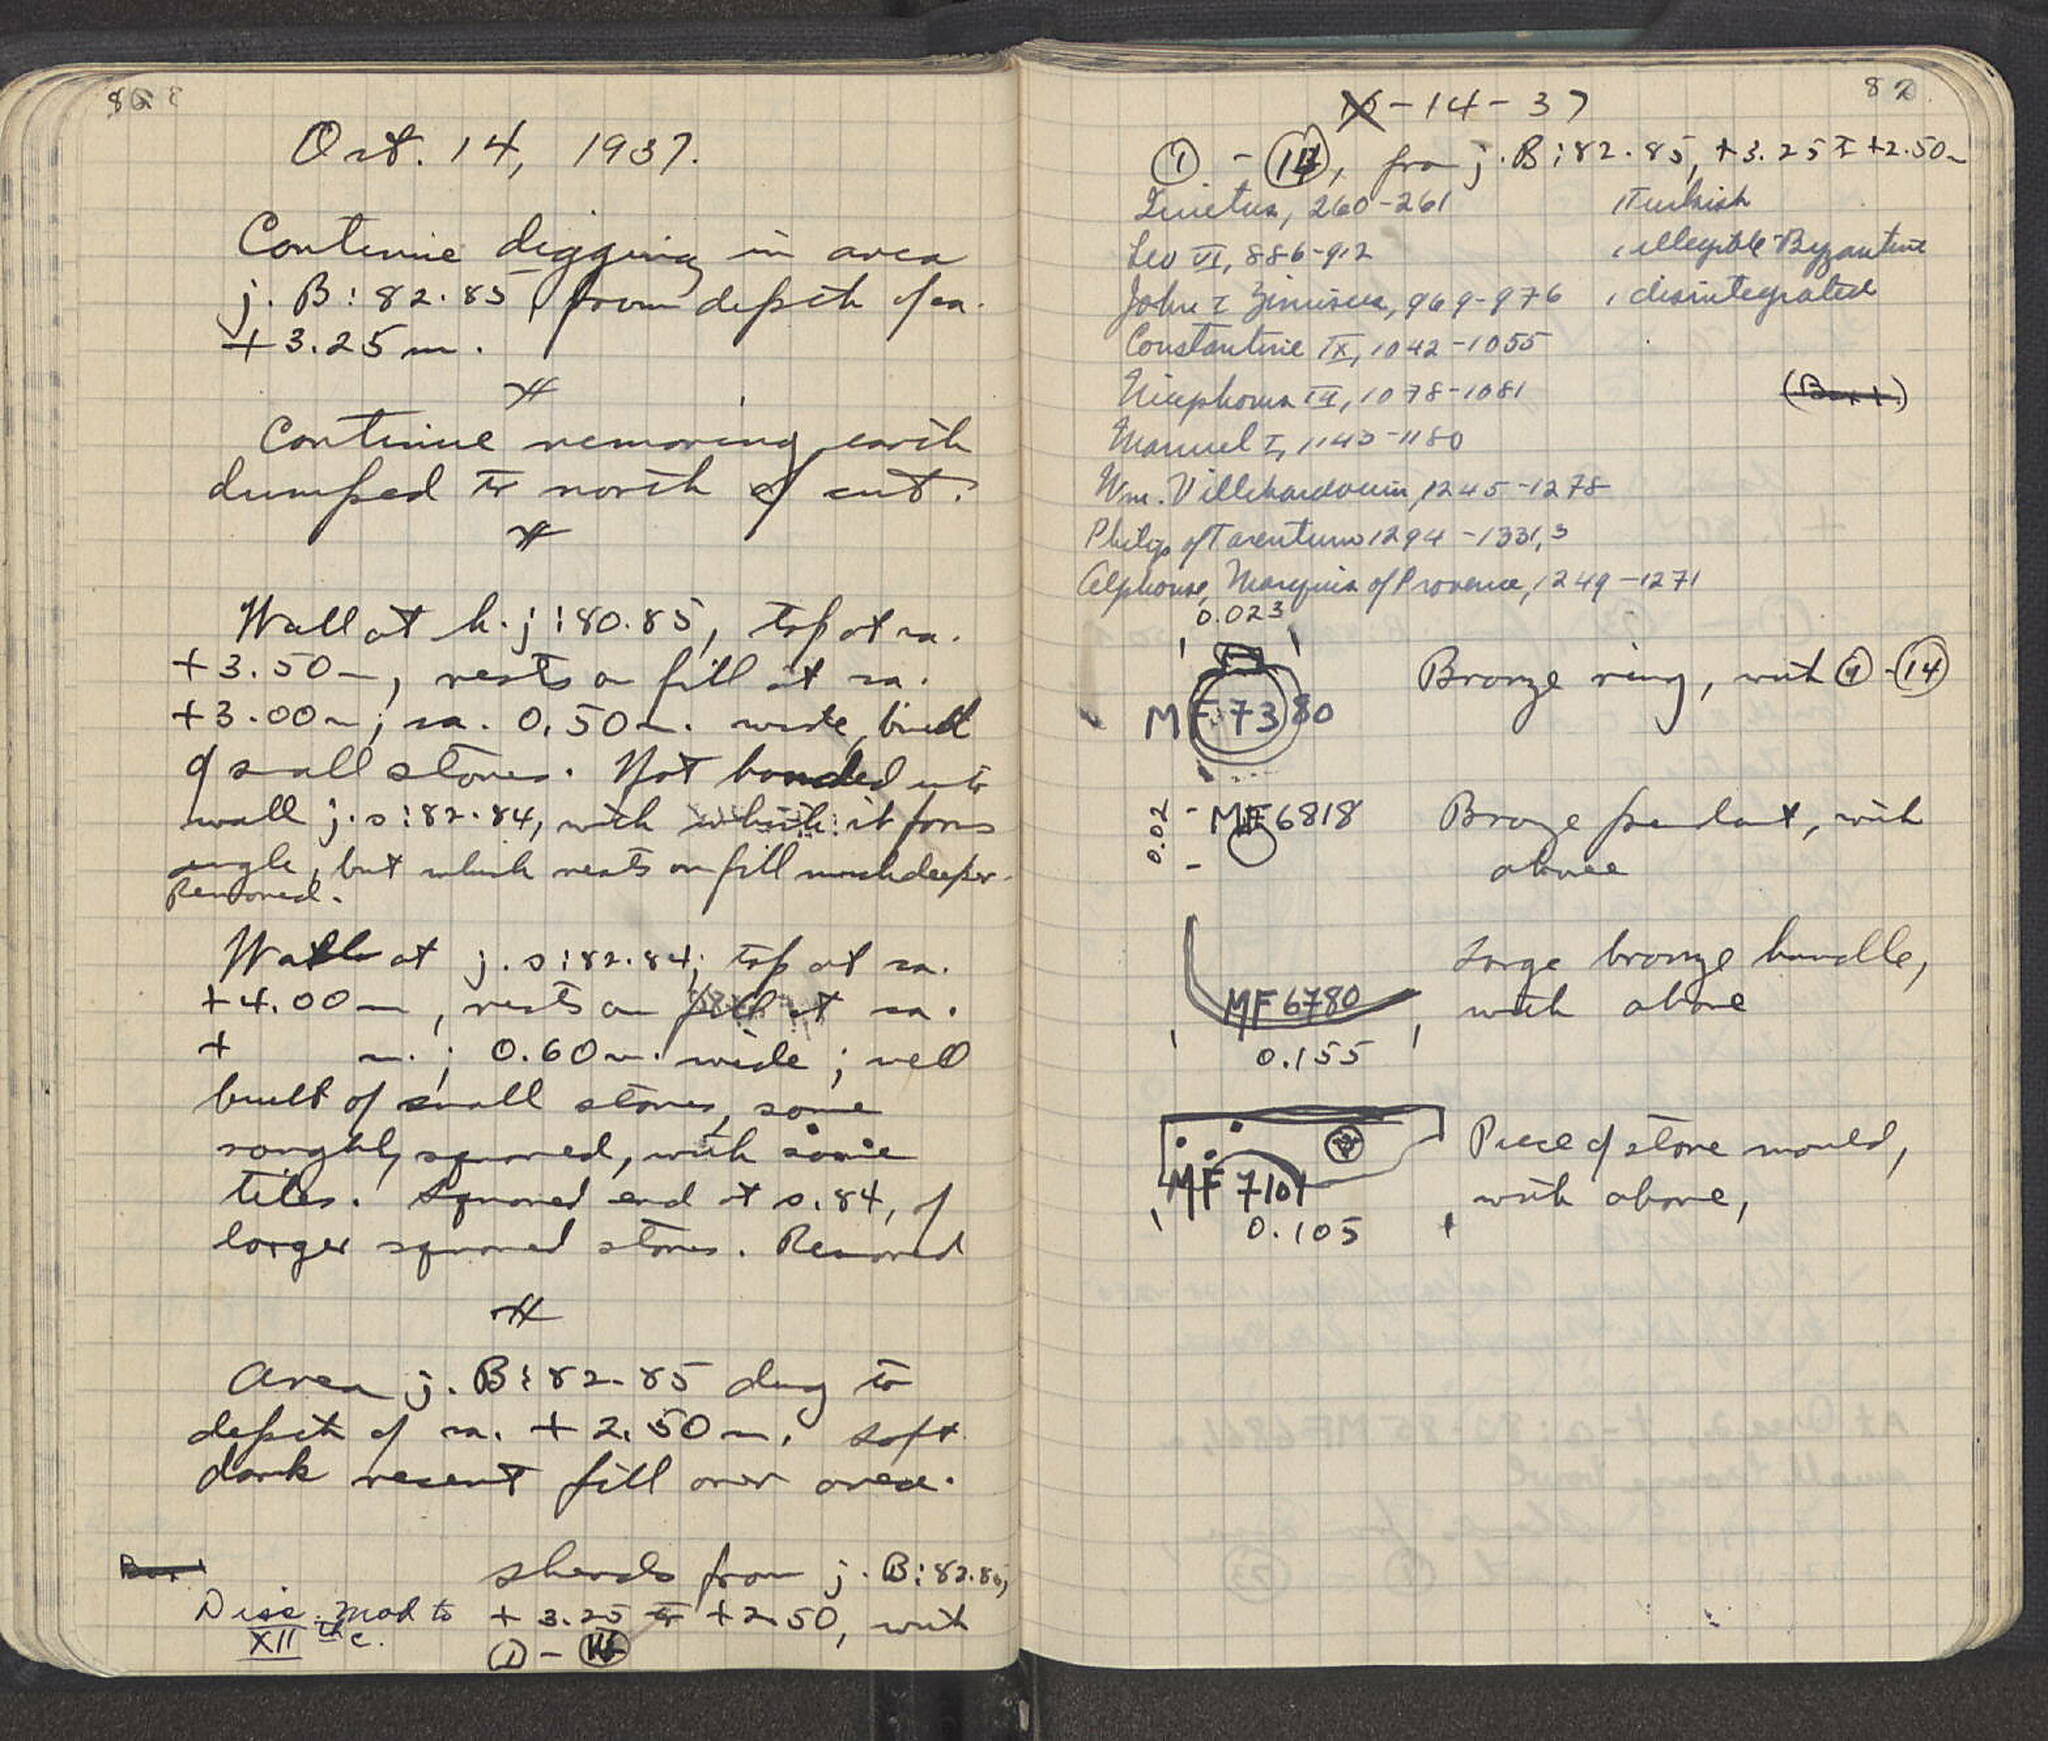 Oct. 14, 1937.
Continue digging in area
j. B : 82.85, from depth of ca.
+3.25 m.
Continue removing earth
dumped to north of cut.
Wall at h. j : 80.85, top at ca.
+3.50 m, rests on fill at ca.
+3.00 m; ca. 0.50 m. wide, built
of small stones. Not bonded into
wall j.s : 82.84, with which it forms
angle, but which rests on fill much deeper.
Removed.
Wall at j.s : 82.84; top at ca.
+4.00 m, rests on fill at ca.
+ m.; 0.60 m. wide; well
built of small stones, some
roughly squared, with some
tiles. Squared end at s.84, of
larger squared stones. Removed
Area j. B : 82.85 dug to
depth of ca. +2.50 m. Soft
dark recent fill over area.
sherds from j. B : 82.85,
Disc. Mod to +3.25 to +2.50, with
XII th c. 1 - 14
82
X - 14 - 37
1 - 14, from j. B : 82.85, +3.25 to +2.50 m
Quietus, 260-261 1 Turkish
Leo VI, 886-912 1 illegible Byzantine
John I Zimisces, 969-976 1 disintegrated
Constantine IX, 1042-1055
Nicephorus III, 1078-1081
(Box 1.)
Manuel I, 1143-1180
Wm. Villehardouin, 1245-1278
Philip of Tarentum 1294-1331, 3
Alphonse, Marquis of Provence, 1249-1271
0.023
Bronze ring, with 1 - 14
MF 7380
0.02 MF 6818 Bronze pendant, with
above
Large bronze handle,
MF 6780 with above
0.155
Piece of stone mould,
MF 7101 with above,
0.105